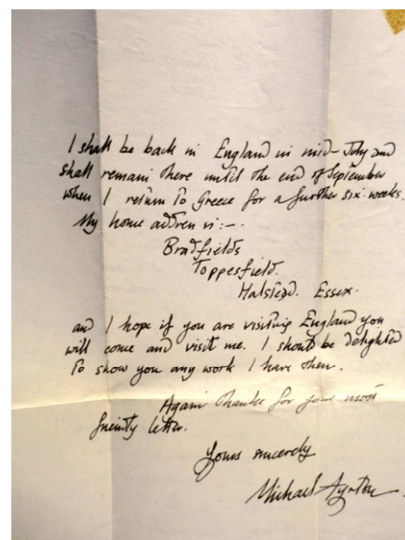 I shall be back in England in mid-July and
shall remain there until the end of September
when I return to Greece for a further six weeks.
My home address is:-.
Bradfields
Toppesfield.
Halstead. Essex.
and I hope if you are visiting England you
will come and visit me. I should be delighted
to show you any work I have then.
Again thanks for your most
friendly letter.
Yours sincerely
Michael Ayrton